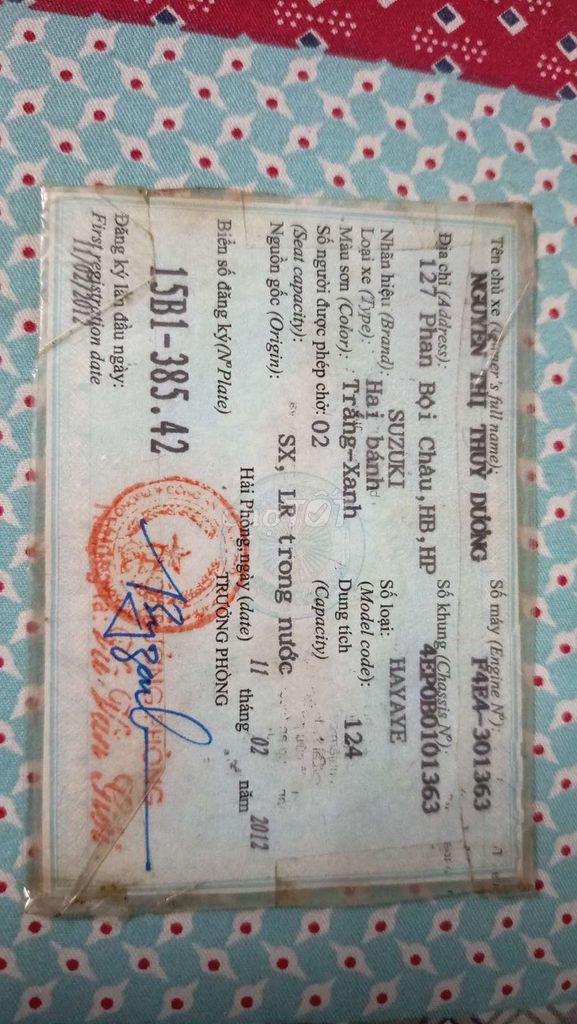 Tên chủ xe (Owner's full name): Số máy (Engine Nº):
NGUYỄN THỊ THUỲ DƯƠNG F4EA-301363
Địa chỉ (Address): Số khung (Chassis Nº):
127 Phan Bội Châu,HB,HP 4EP0B0101363
Nhãn hiệu (Brand): SUZUKI Số loại: HAYAYE
Loại xe (Type): Hai bánh (Model code):
Màu sơn (Color): Trắng-Xanh Dung tích 124
Số người được phép chở: 02 (Capacity)
(Seat capacity):
Nguồn gốc (Origin): SX, LR trong nước
Hải Phòng, ngày (date) 11 tháng 02 năm 2012
Biển số đăng ký (Nº Plate) TRƯỞNG PHÒNG
15B1-385.42
Đăng ký lần đầu ngày:
First registration date